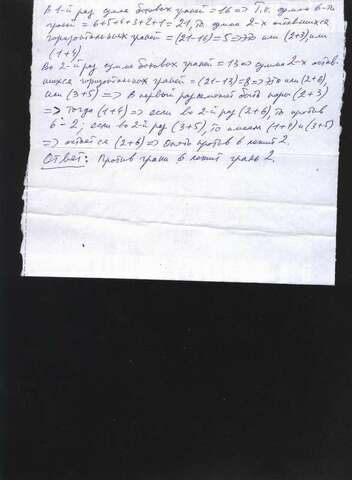 В 1-й раз сумма боковых граней = 16 => Т.к. сумма 6-ти
граней = 6+5+4+3+2+1 = 21, то сумма 2-х оставшихся
горизонтальных граней = (21-16) = 5 => Это или (2+3) или
(1+4)
Во 2-й раз сумма боковых граней = 13 => сумма 2-х остав-
шихся горизонтальных граней = (21-13) = 8 => Это или (2+6),
или (3+5) => В первый раз может быть пары (2+3)
=> тогда (1+4) => если во 2-й раз (2+6), то против
6 - 2; если во 2-й раз (3+5), то имеем (1+4) и (3+5)
=> остаётся (2+6) => Опять против 6 лежит 2.
Ответ: Против грани 6 лежит грань 2.